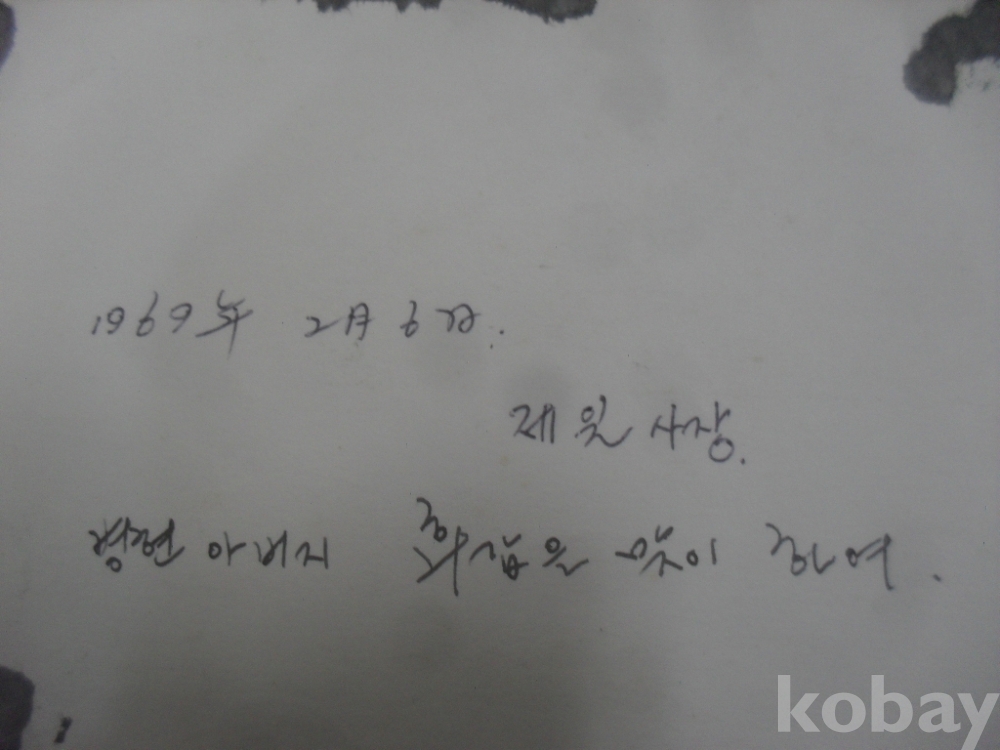 1969年 2月 6日.
제원 사장.
아버지 화갑을 맞이 하여.
kobay